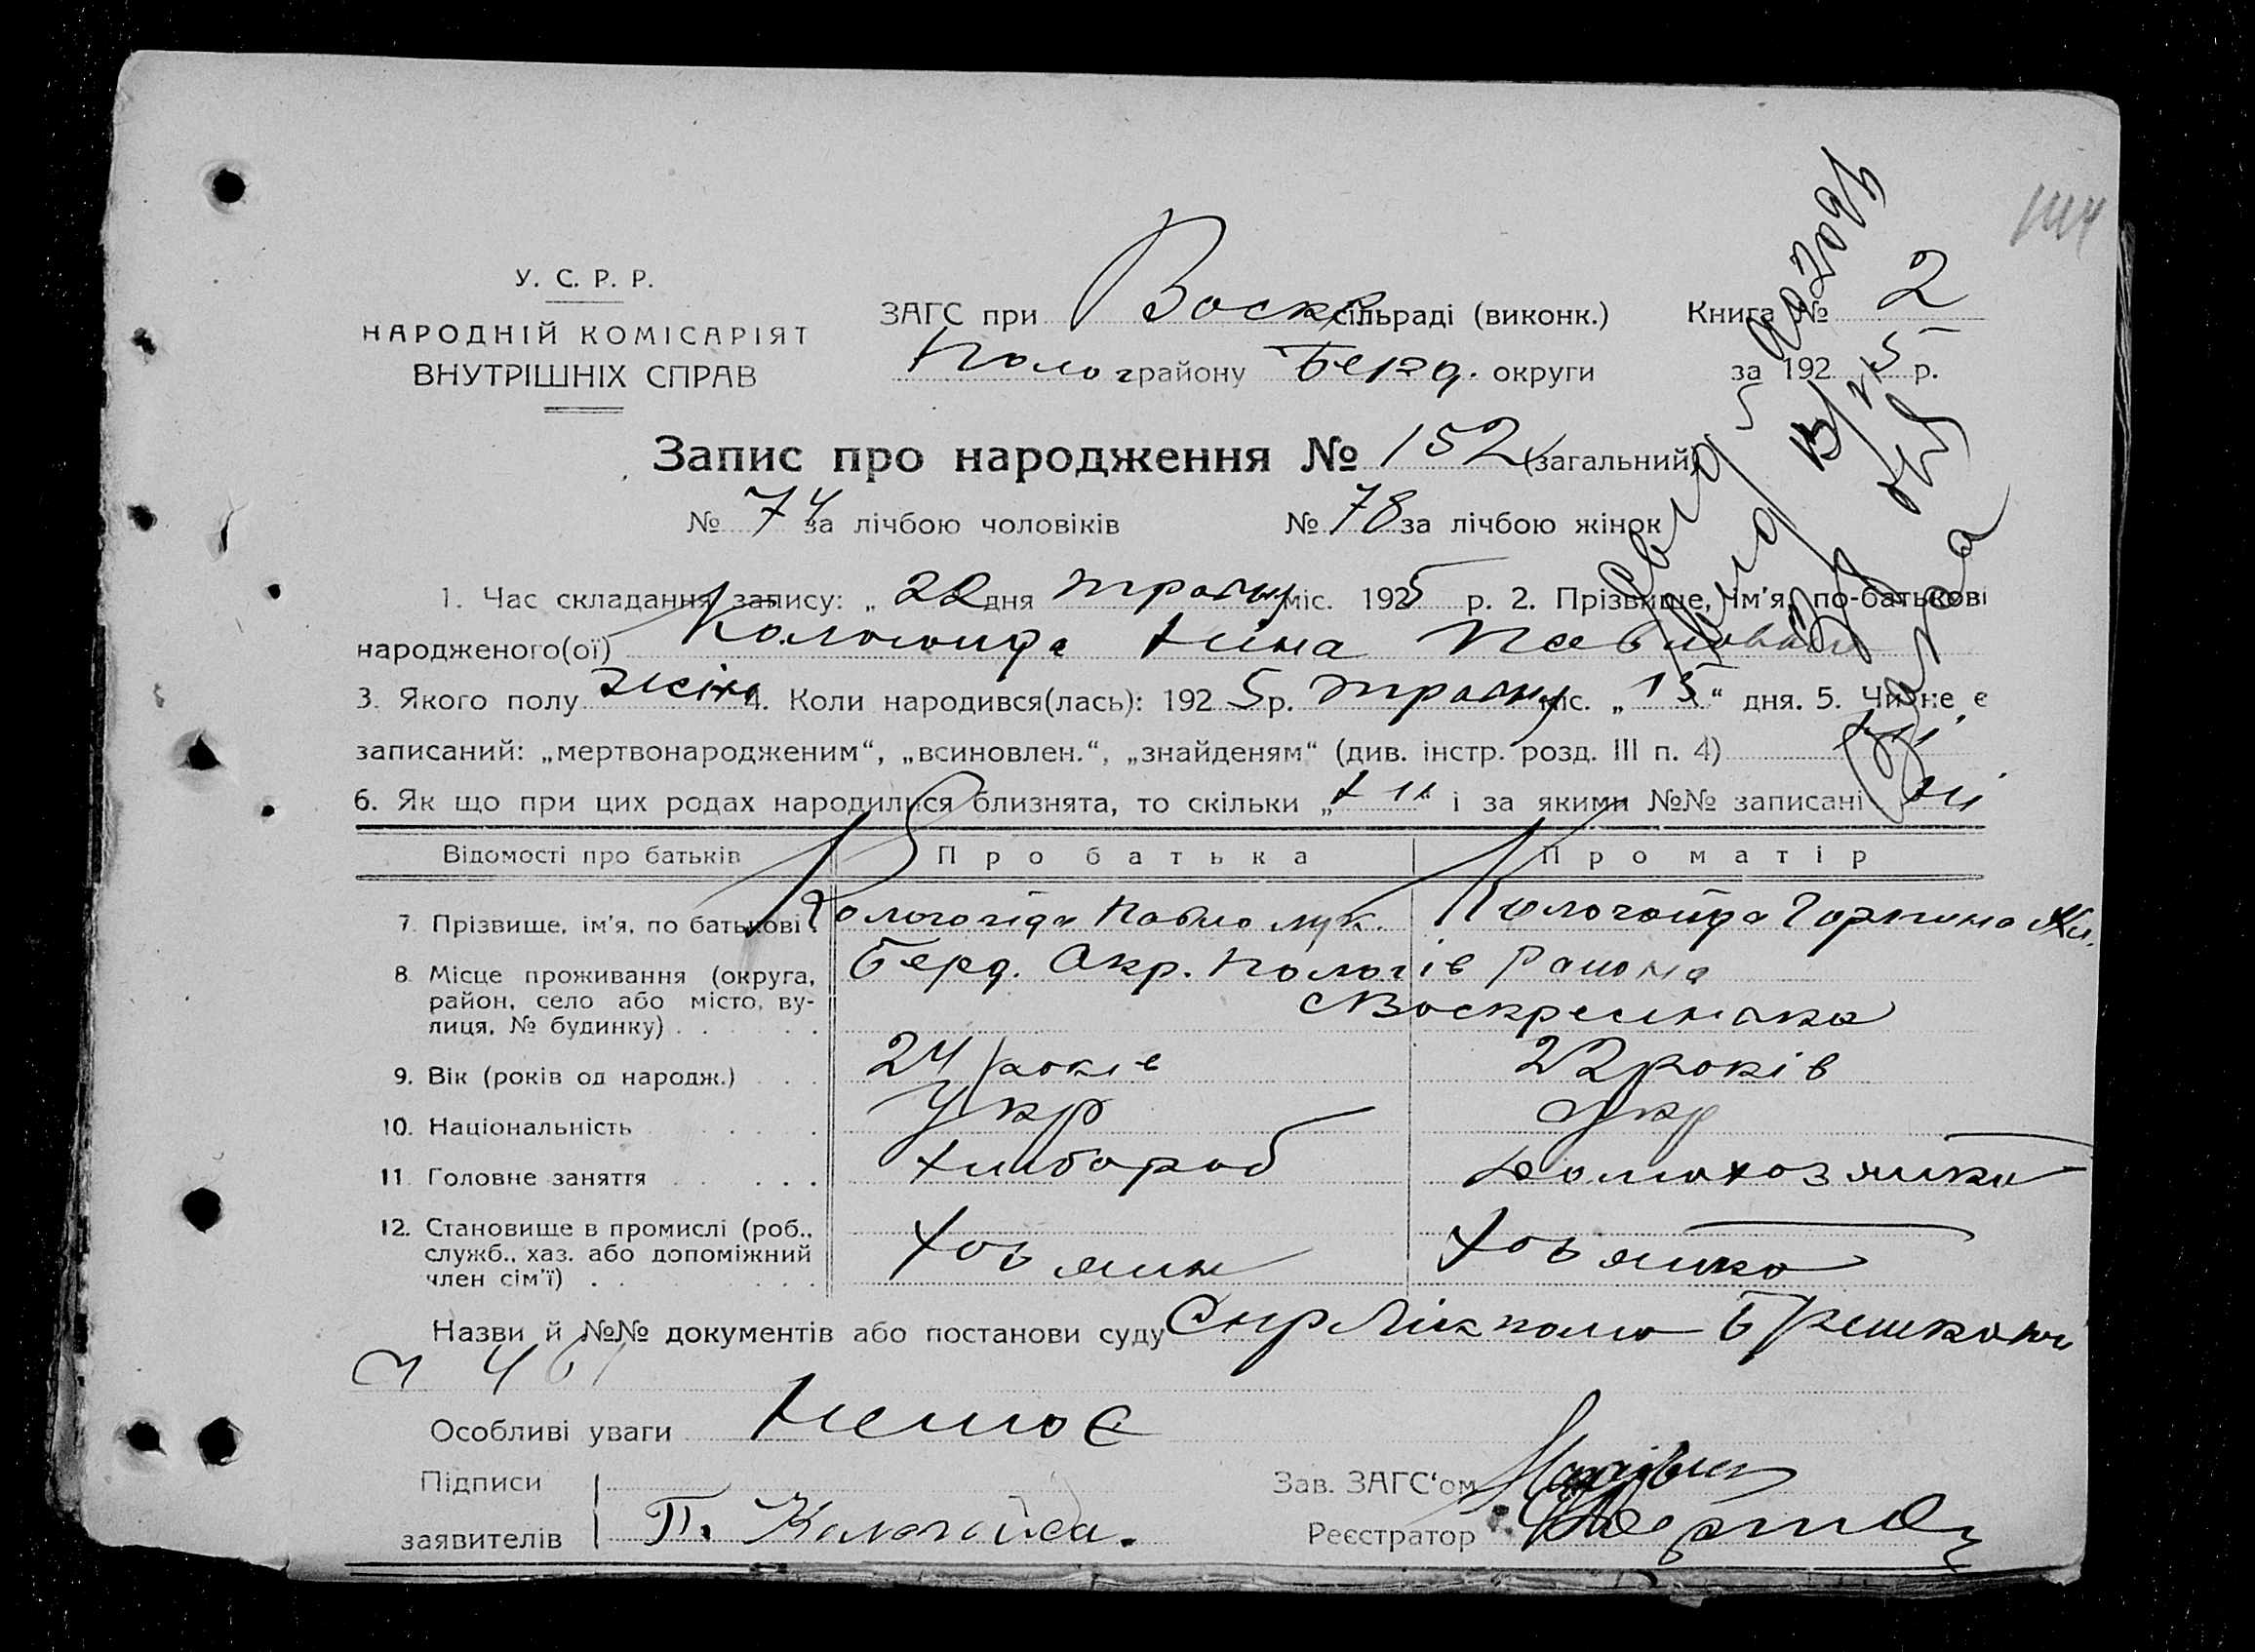 144
У. С. Р. Р.
НАРОДНІЙ КОМІСАРІЯТ
ВНУТРІШНІХ СПРАВ
ЗАГС при Воскр сільраді (виконк.) Книга № 2
Полог району Берд. округи за 1925 р.
Запис про народження № 152 (загальний)
№ 74 за лічбою чоловіків № 78 за лічбою жінок
1. Час складання запису: „ 22 дня травня міс. 1925 р. 2. Прізвище, ім'я, по-батькові
народженого(ої) Кологойда Ніна Павловна
3. Якого полу жіно 4. Коли народився(лась): 1925 р. травня міс. „ 15 “ дня. 5. Чи не є
записаний: „мертвонародженим“, „всиновлен.“, „знайденям“ (див. інстр. розд. III п. 4) ні
6. Як що при цих родах народилися близнята, то скільки „ ні “ і за якими №№ записані ні
Відомості про батьків Про батька Про матір
7. Прізвище, ім'я, по батькові. Кологойда Павло Лук. Кологойда Горпина
8. Місце проживання (округа, Берд. Окр. Пологів Района
район, село або місто, ву- с Воскресенска
лиця, № будинку)
9. Вік (років од народж.) 24 років 22 років
10. Національність Укр Укр
11. Головне заняття хлібороб домохозяйка
12. Становище в промислі (роб., хозяин хозяйка
служб., хаз. або допоміжний
член сім'ї)
Назви й №№ документів або постанови суду
Особливі уваги Немає
Підписи Зав. ЗАГС‘ом
заявителів П. Кологойда. Реєстратор